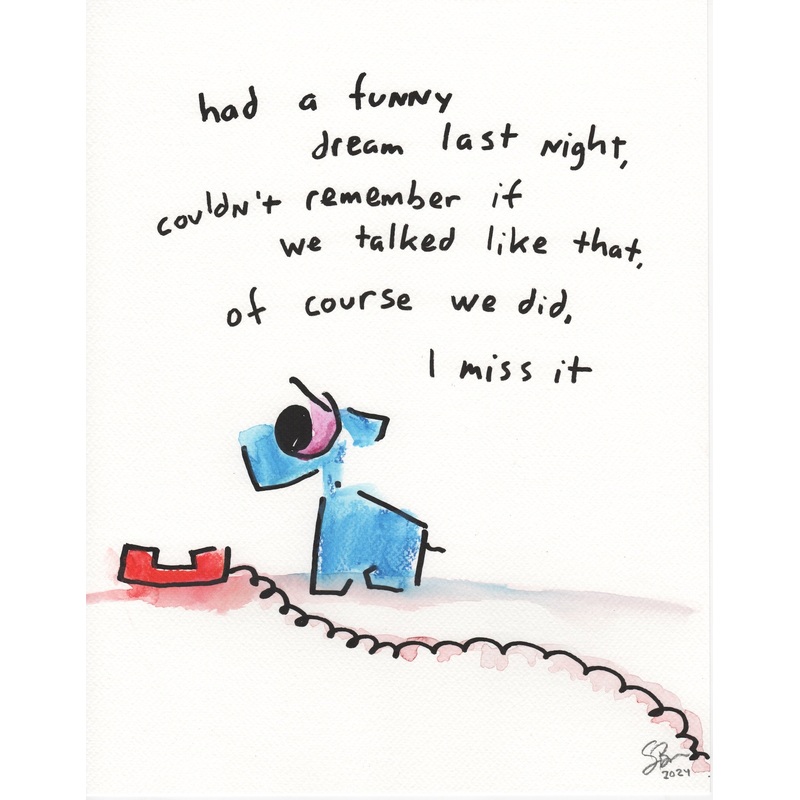 had a funny
dream last night,
couldn't remember if
we talked like that,
of course we did,
I miss it
2024